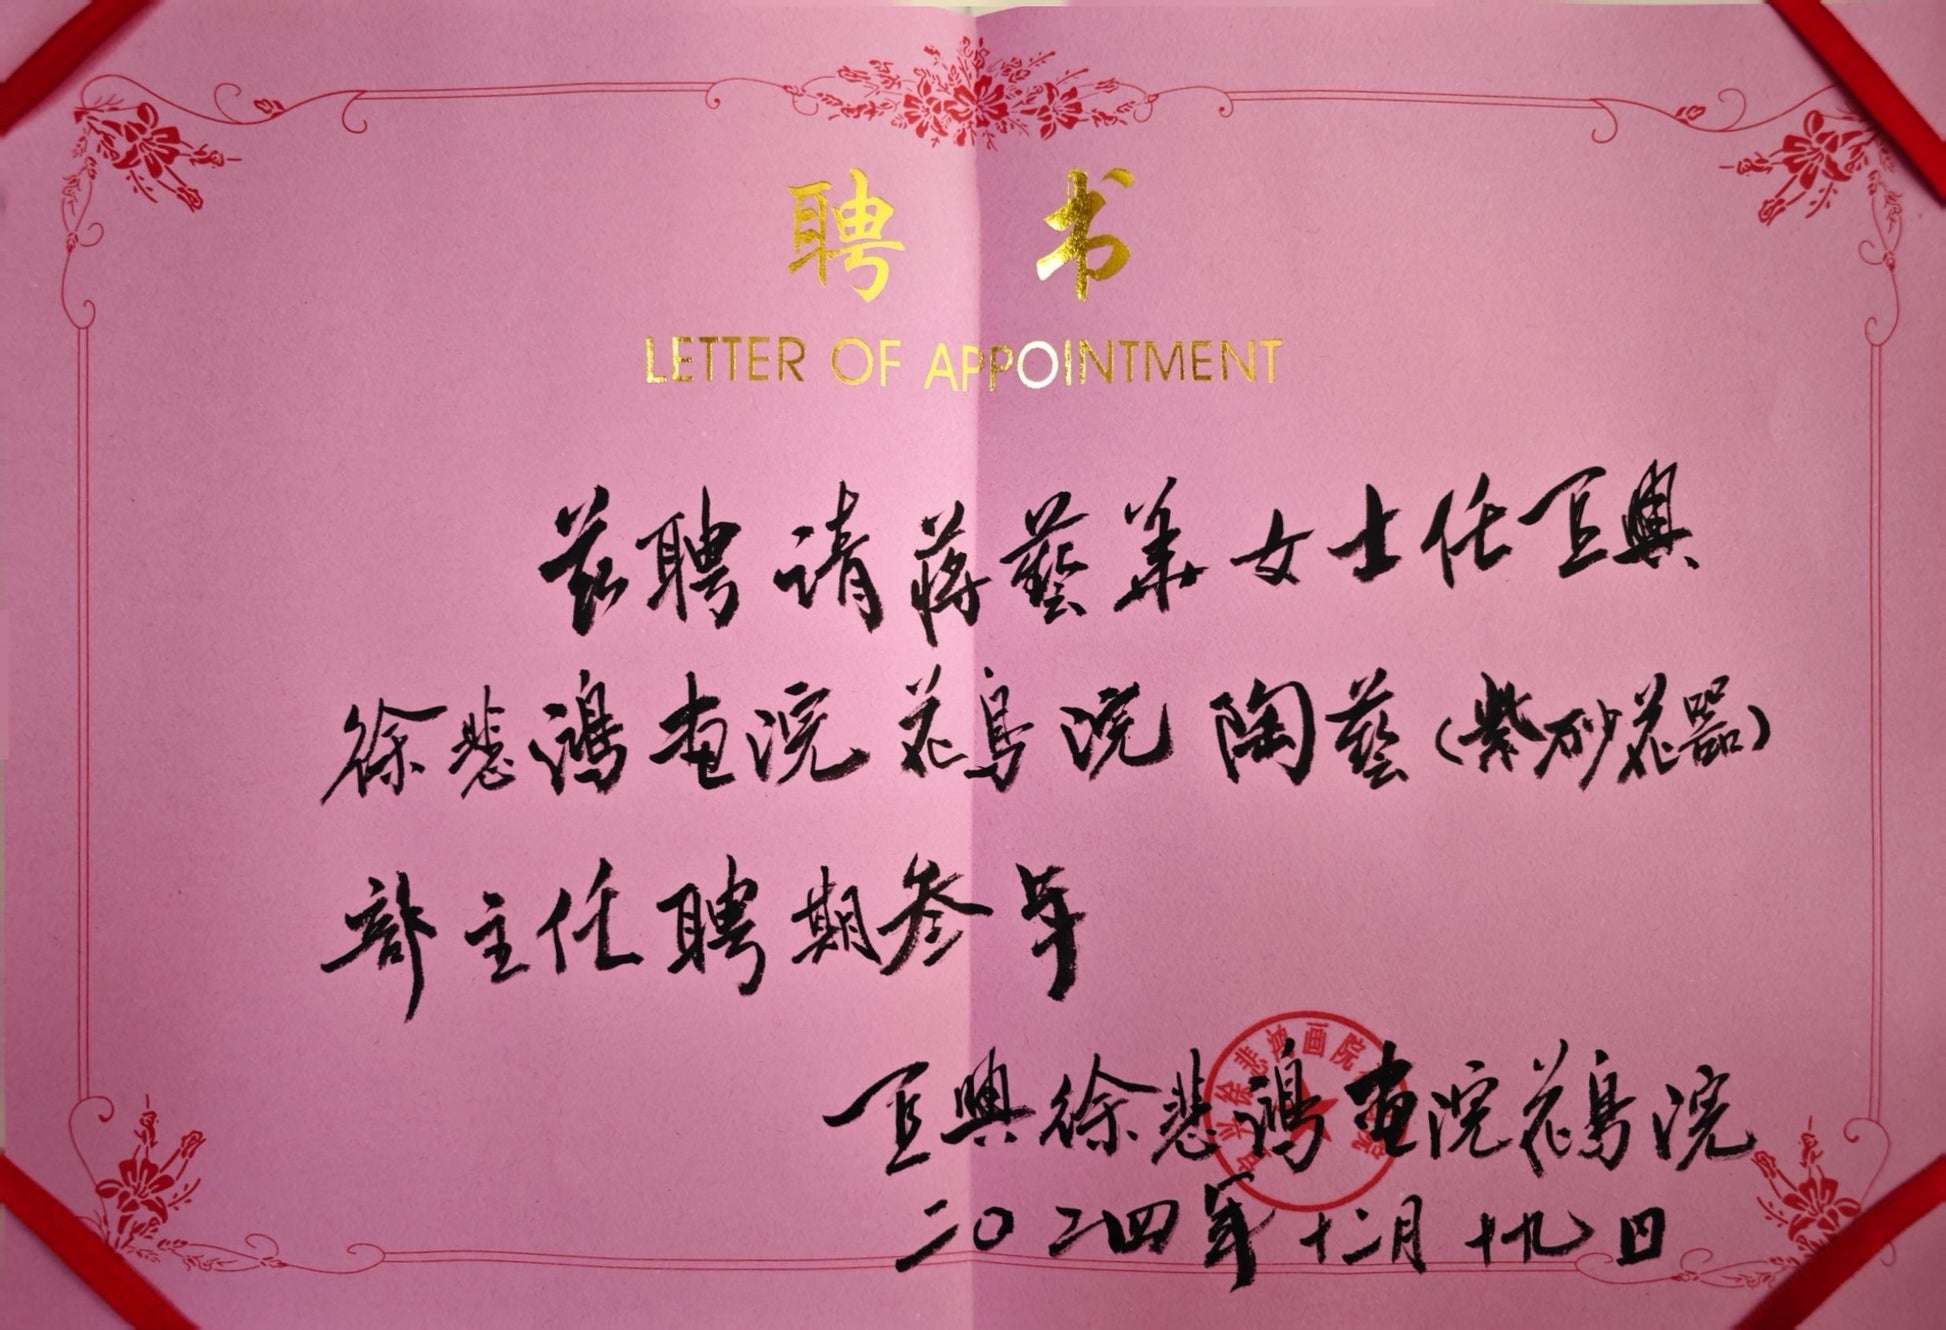 聘书
LETTER OF APPOINTMENT
兹聘请蒋藝华女士任宜興
徐悲鴻画院花鳥院陶藝(紫砂花器)
部主任聘期叁年
宜興徐悲鴻画院花鳥院
二〇二四年十二月十九日
宜兴徐悲鸿画院花鸟院